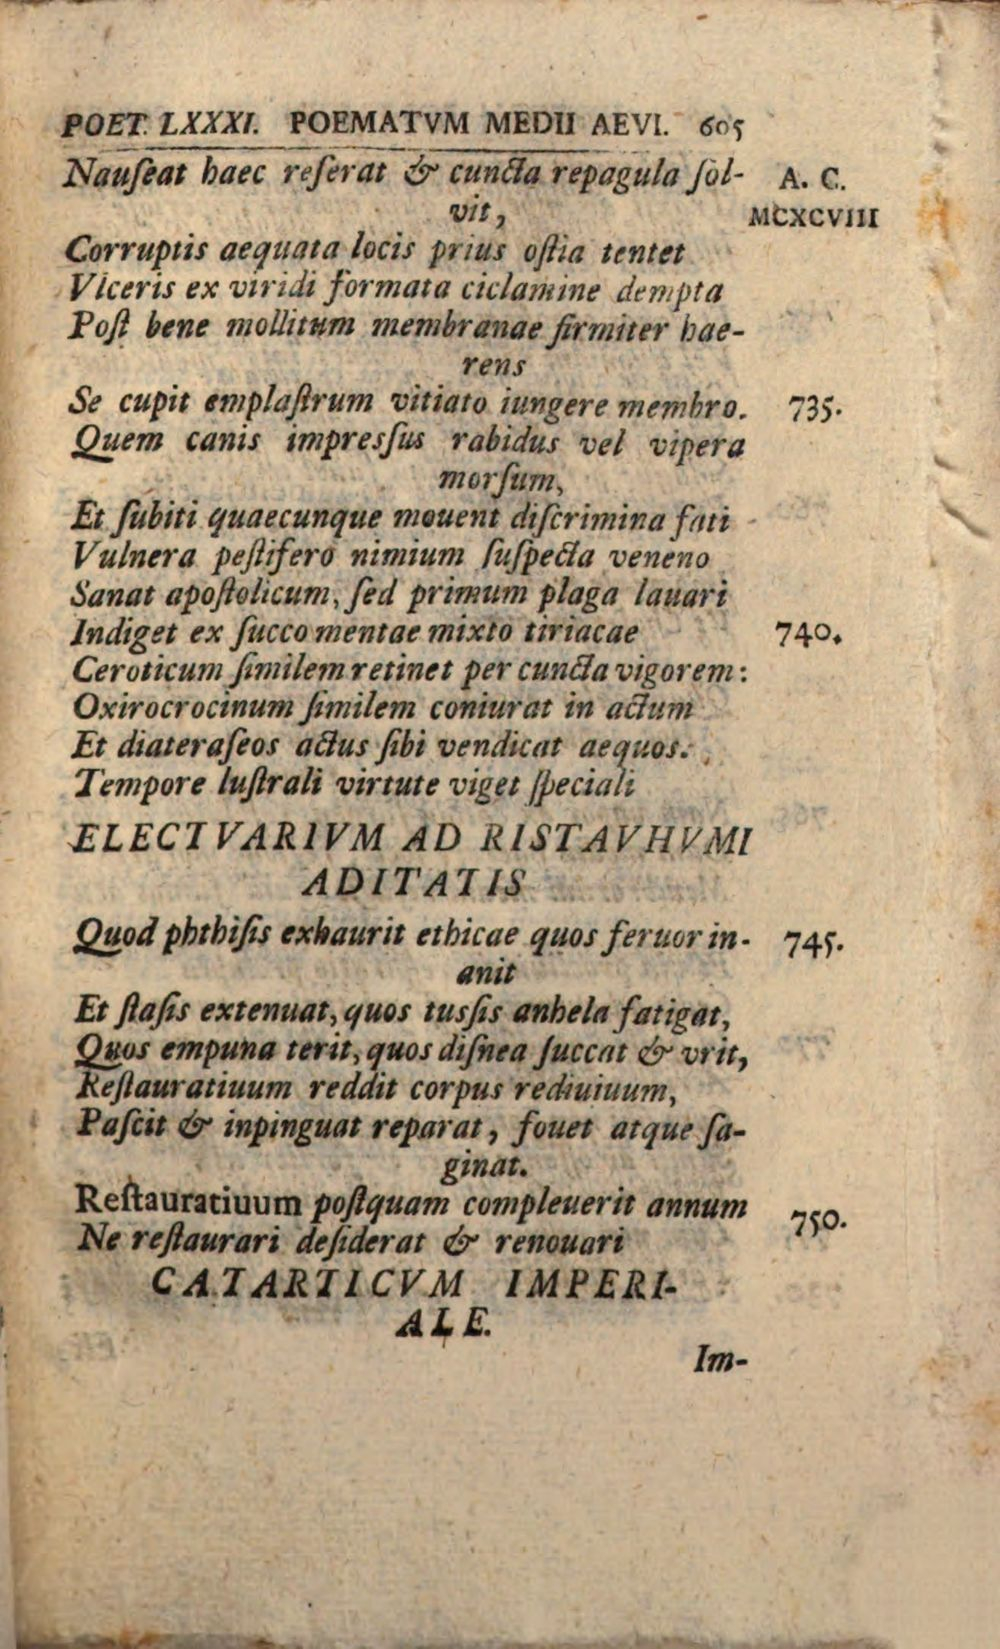 POET. LXXXI. POEMATVM MEDII AEVI. 605
Nauſeat haec reſerat & cuncta repagula ſol- A. C.
vit, MCXCVIII
Corruptis aequata locis prius oſtia tentet
Vlceris ex viridi formata ciclamine dempta
Poſt bene mollitum membranae firmiter hae-
rens
Se cupit emplaſtrum vitiato iungere membro. 735.
Quem canis impresſus rabidus vel vipera
morſum,
Et ſubiti quaecunque mouent diſcrimina fati
Vulnera peſtifero nimium ſuſpecta veneno
Sanat apoſtolicum, ſed primum plaga lauari
Indiget ex ſucco mentae mixto tiriacae 740.
Ceroticum ſimilem retinet per cuncta vigorem:
Oxirocrocinum ſimilem coniurat in actum
Et diateraſeos actus ſibi vendicat aequos.
Tempore luſtrali virtute viget ſpeciali
ELECTVARIVM AD RISTAVHVMI
ADITATIS
Quod phthiſis exhaurit ethicae quos feruor in- 745.
anit
Et ſtaſis extenuat, quos tusſis anhela fatigat,
Quos empuna terit, quos diſnea ſuccat & vrit,
Reſtauratiuum reddit corpus rediuiuum,
Paſcit & inpinguat reparat, fouet atque ſa-
ginat.
Reſtauratiuum poſtquam compleuerit annum 750.
Ne reſtaurari deſiderat & renouari
CATARTICVM IMPERI-
ALE.
Im-